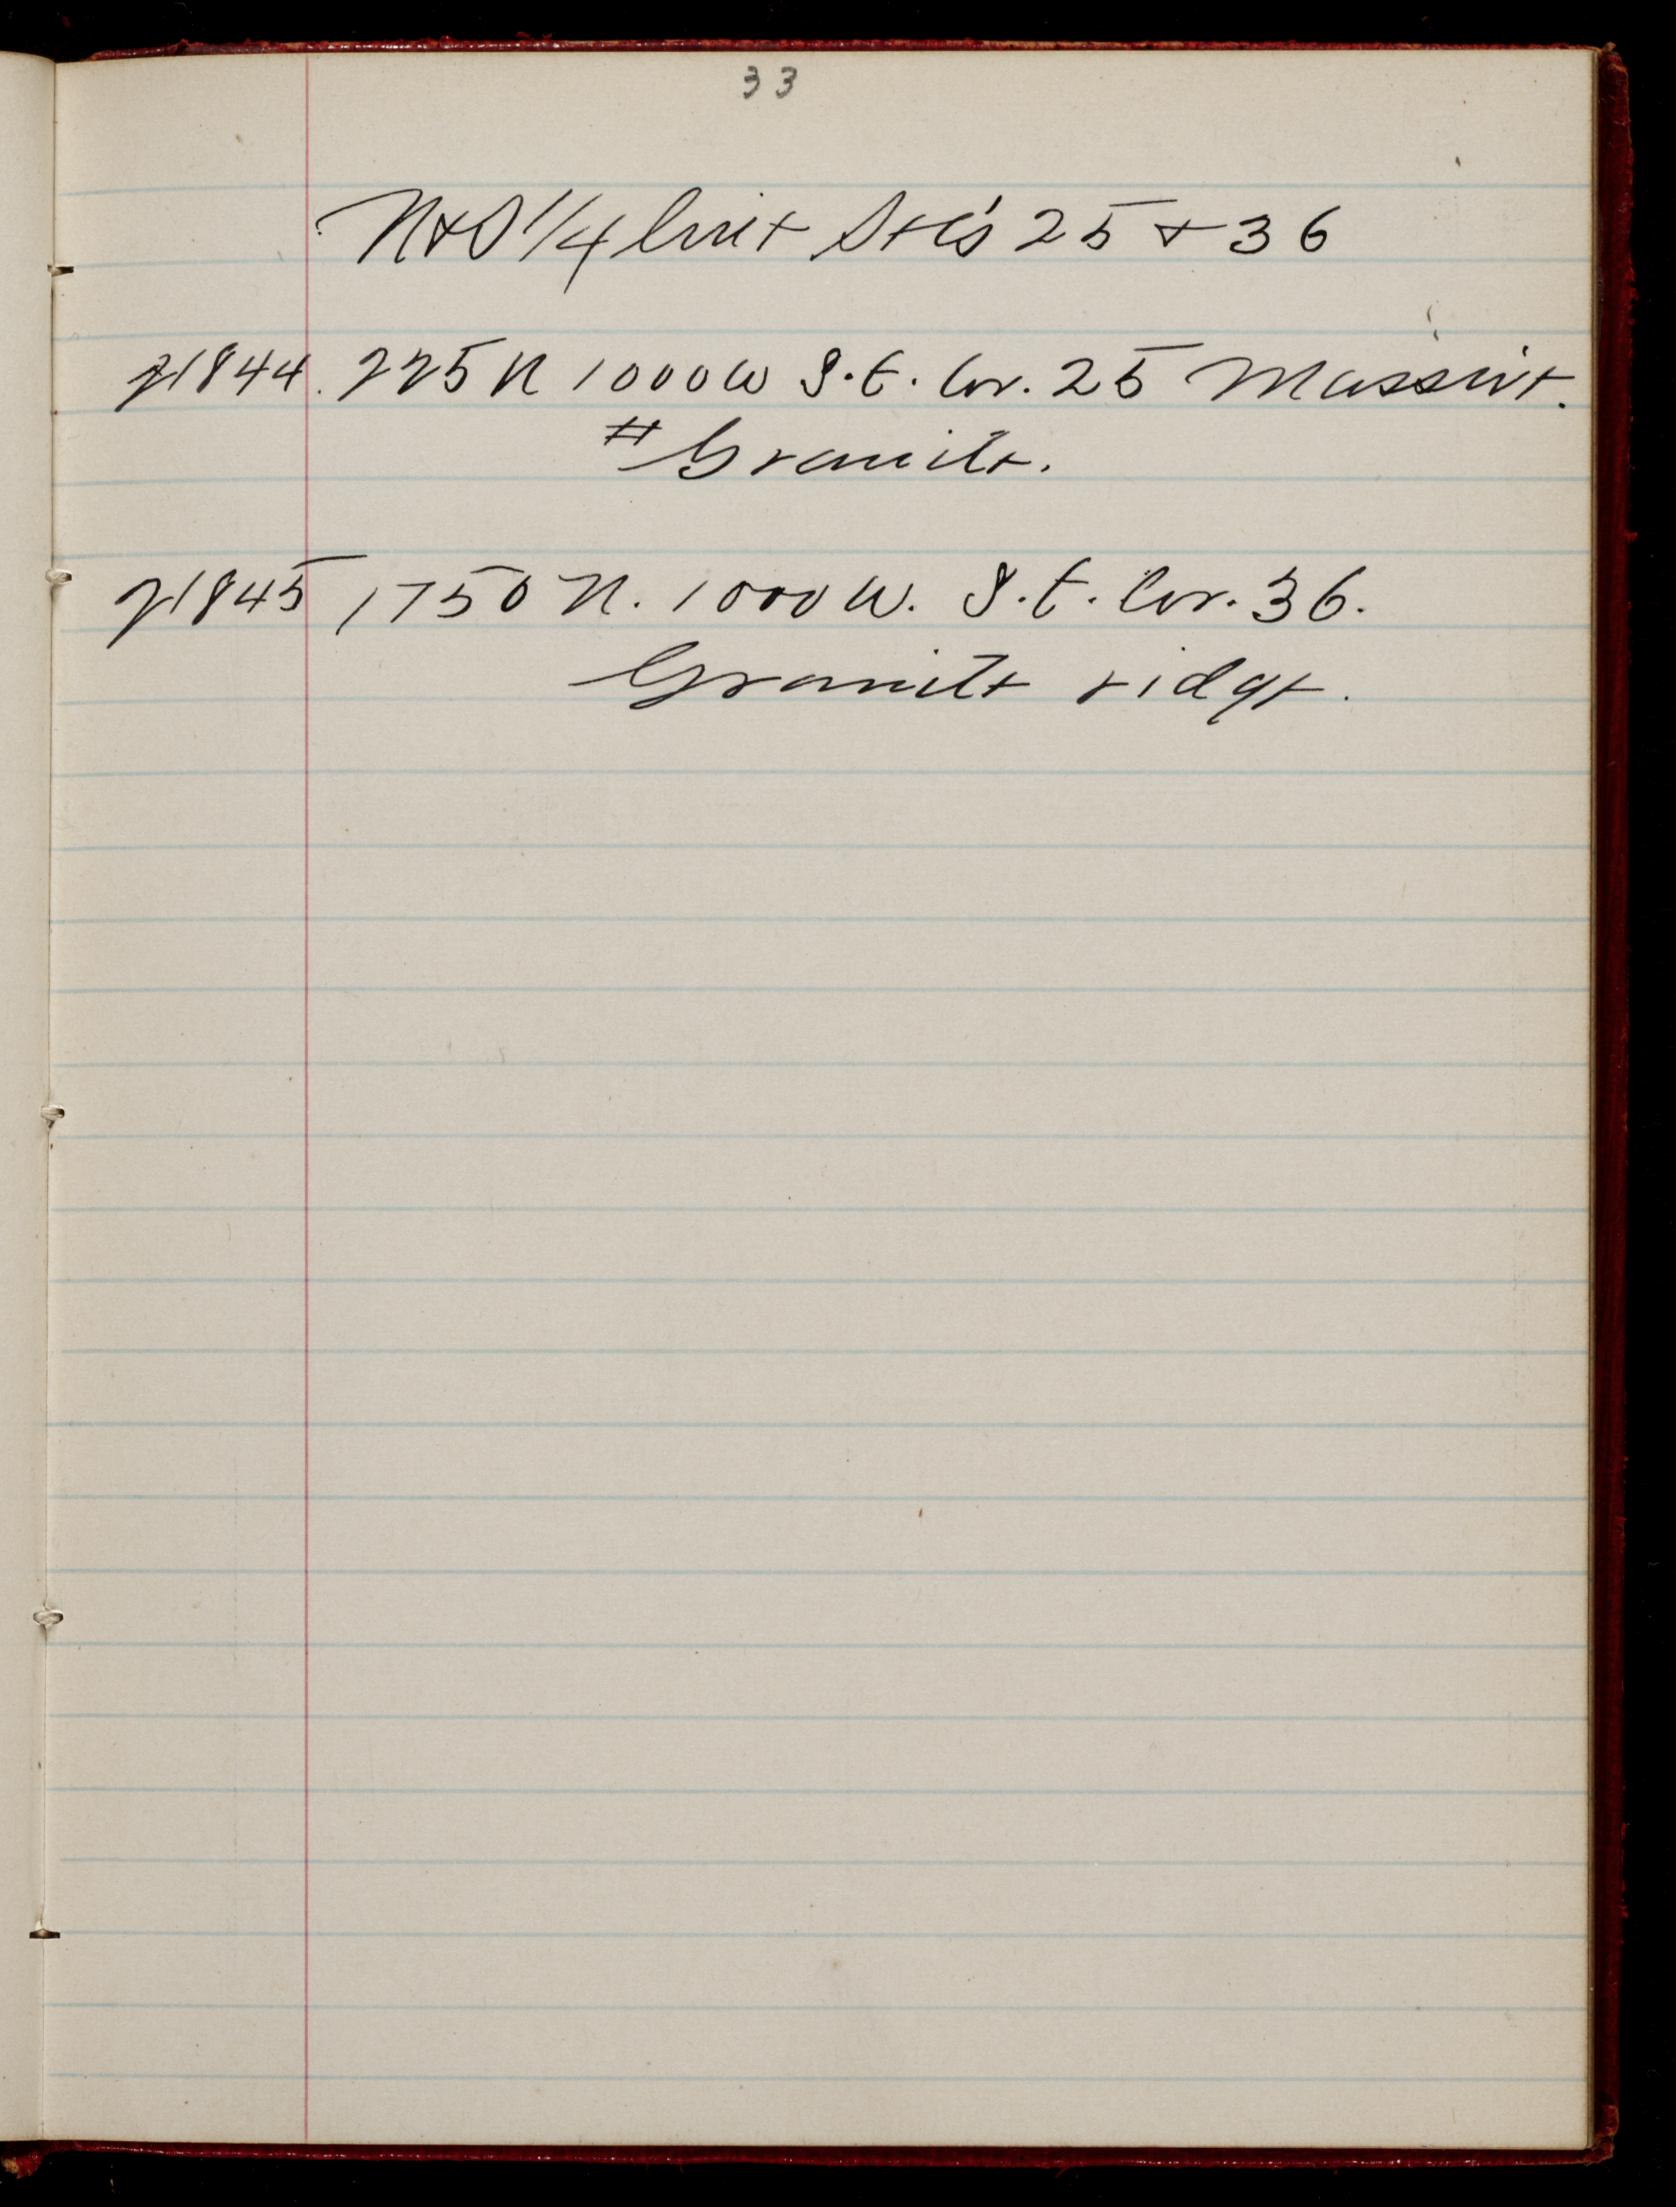 33
N & S 1/4 line Sec's 25 & 36
21844. 225 N 1000 W S.E. Cor. 25 Massive.
# Granite.
21845 1750 N. 1000 W. S.E. Cor. 36.
Granite ridge.